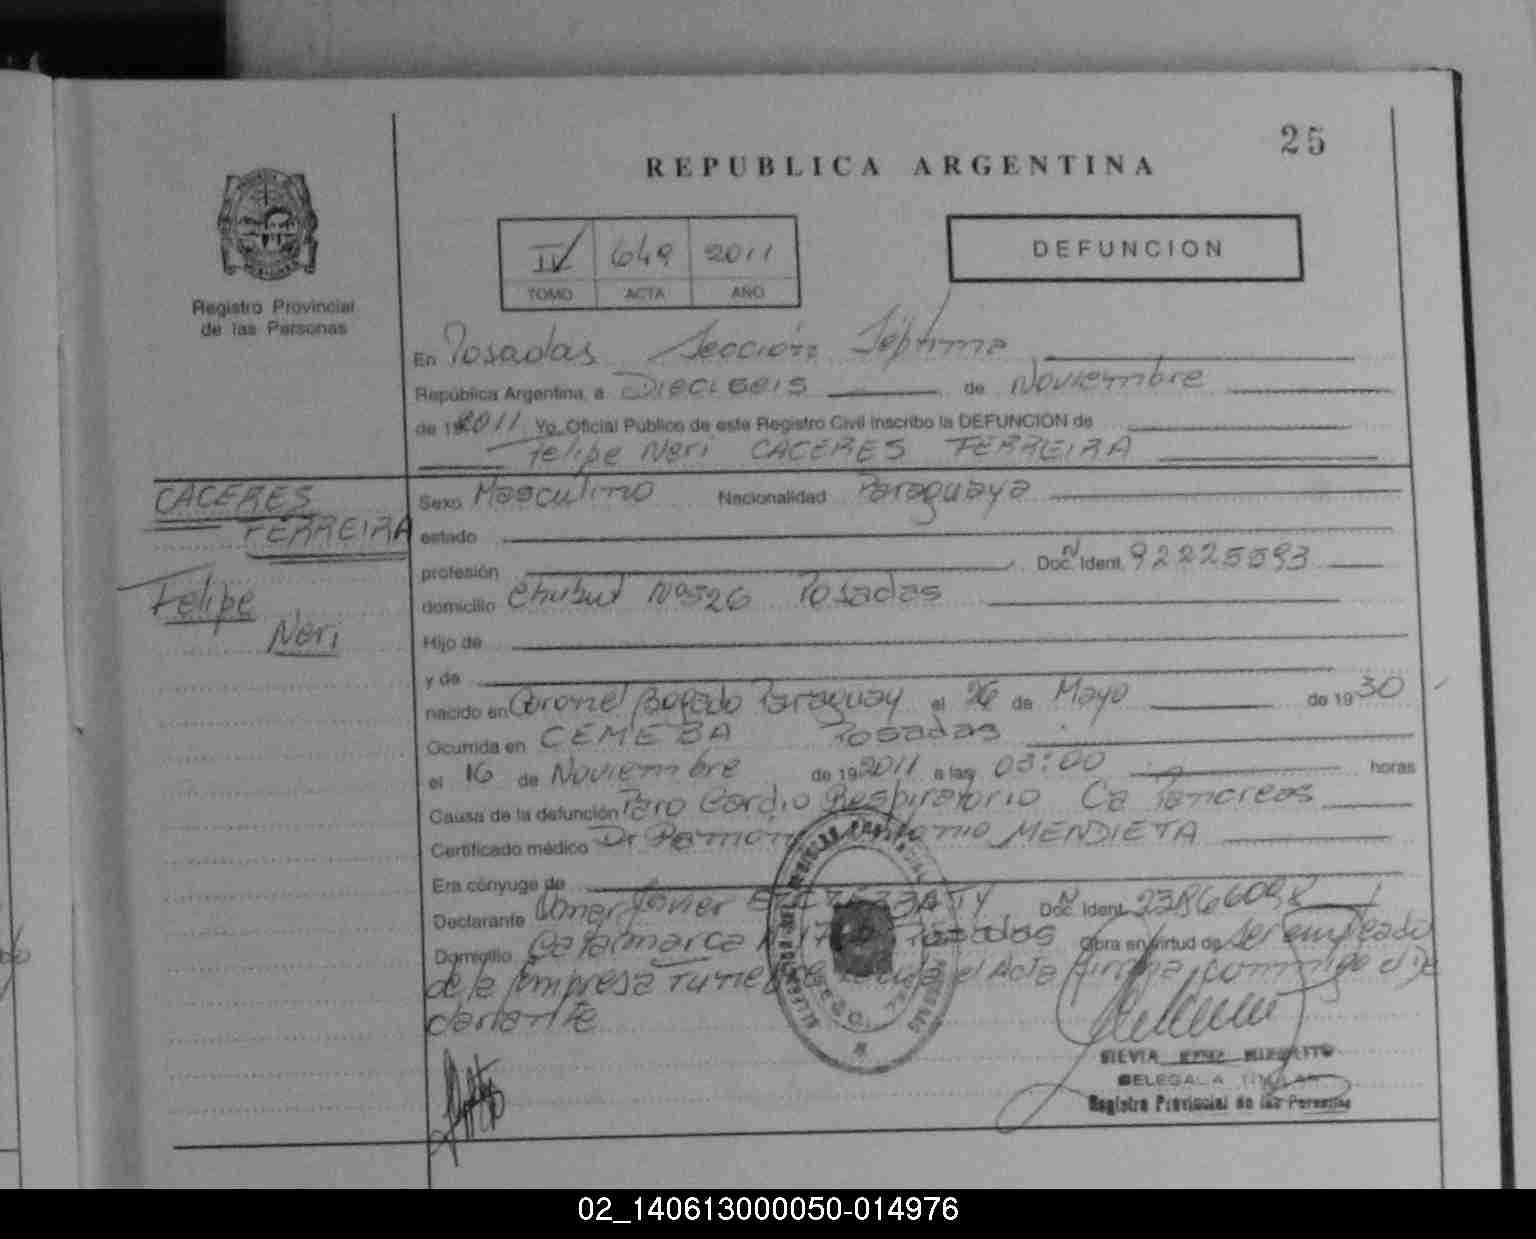 25
REPUBLICA ARGENTINA
IV 649 2011
TOMO ACTA AÑO
DEFUNCION
Registro Provincial
de las Personas
En Posadas Sección Séptima
República Argentina, a Dieciseis de Noviembre
de 2011 Yo, Oficial Público de este Registro Civil inscribo la DEFUNCION de
Felipe Neri CACERES FERREIRA
CACERES
FERREIRA
Felipe
Neri
Sexo Masculino Nacionalidad Paraguaya
estado
profesión Doc. Ident. Nº 92225593
domicilio Chubut Nº 526 Posadas
Hijo de
y de
nacido en Coronel Bogado Paraguay el 26 de Mayo de 1930
Ocurrida en CEMEBA Posadas
el 16 de Noviembre de 19 2011 a las 03:00 horas
Causa de la defunción Paro Cardio Respiratorio Ca Pancreas
Certificado médico Dr Ramón MENDIETA
Era cónyuge de
Declarante Omar Javier Doc. Ident. Nº 23866098
Domicilio Catamarca Posadas Obra en virtud de ser empleado
de la Empresa el Acta firma conmigo el De
clarante
SILVIA
DELEGADA TITULAR
Registro Provincial de las Personas
02_140613000050-014976